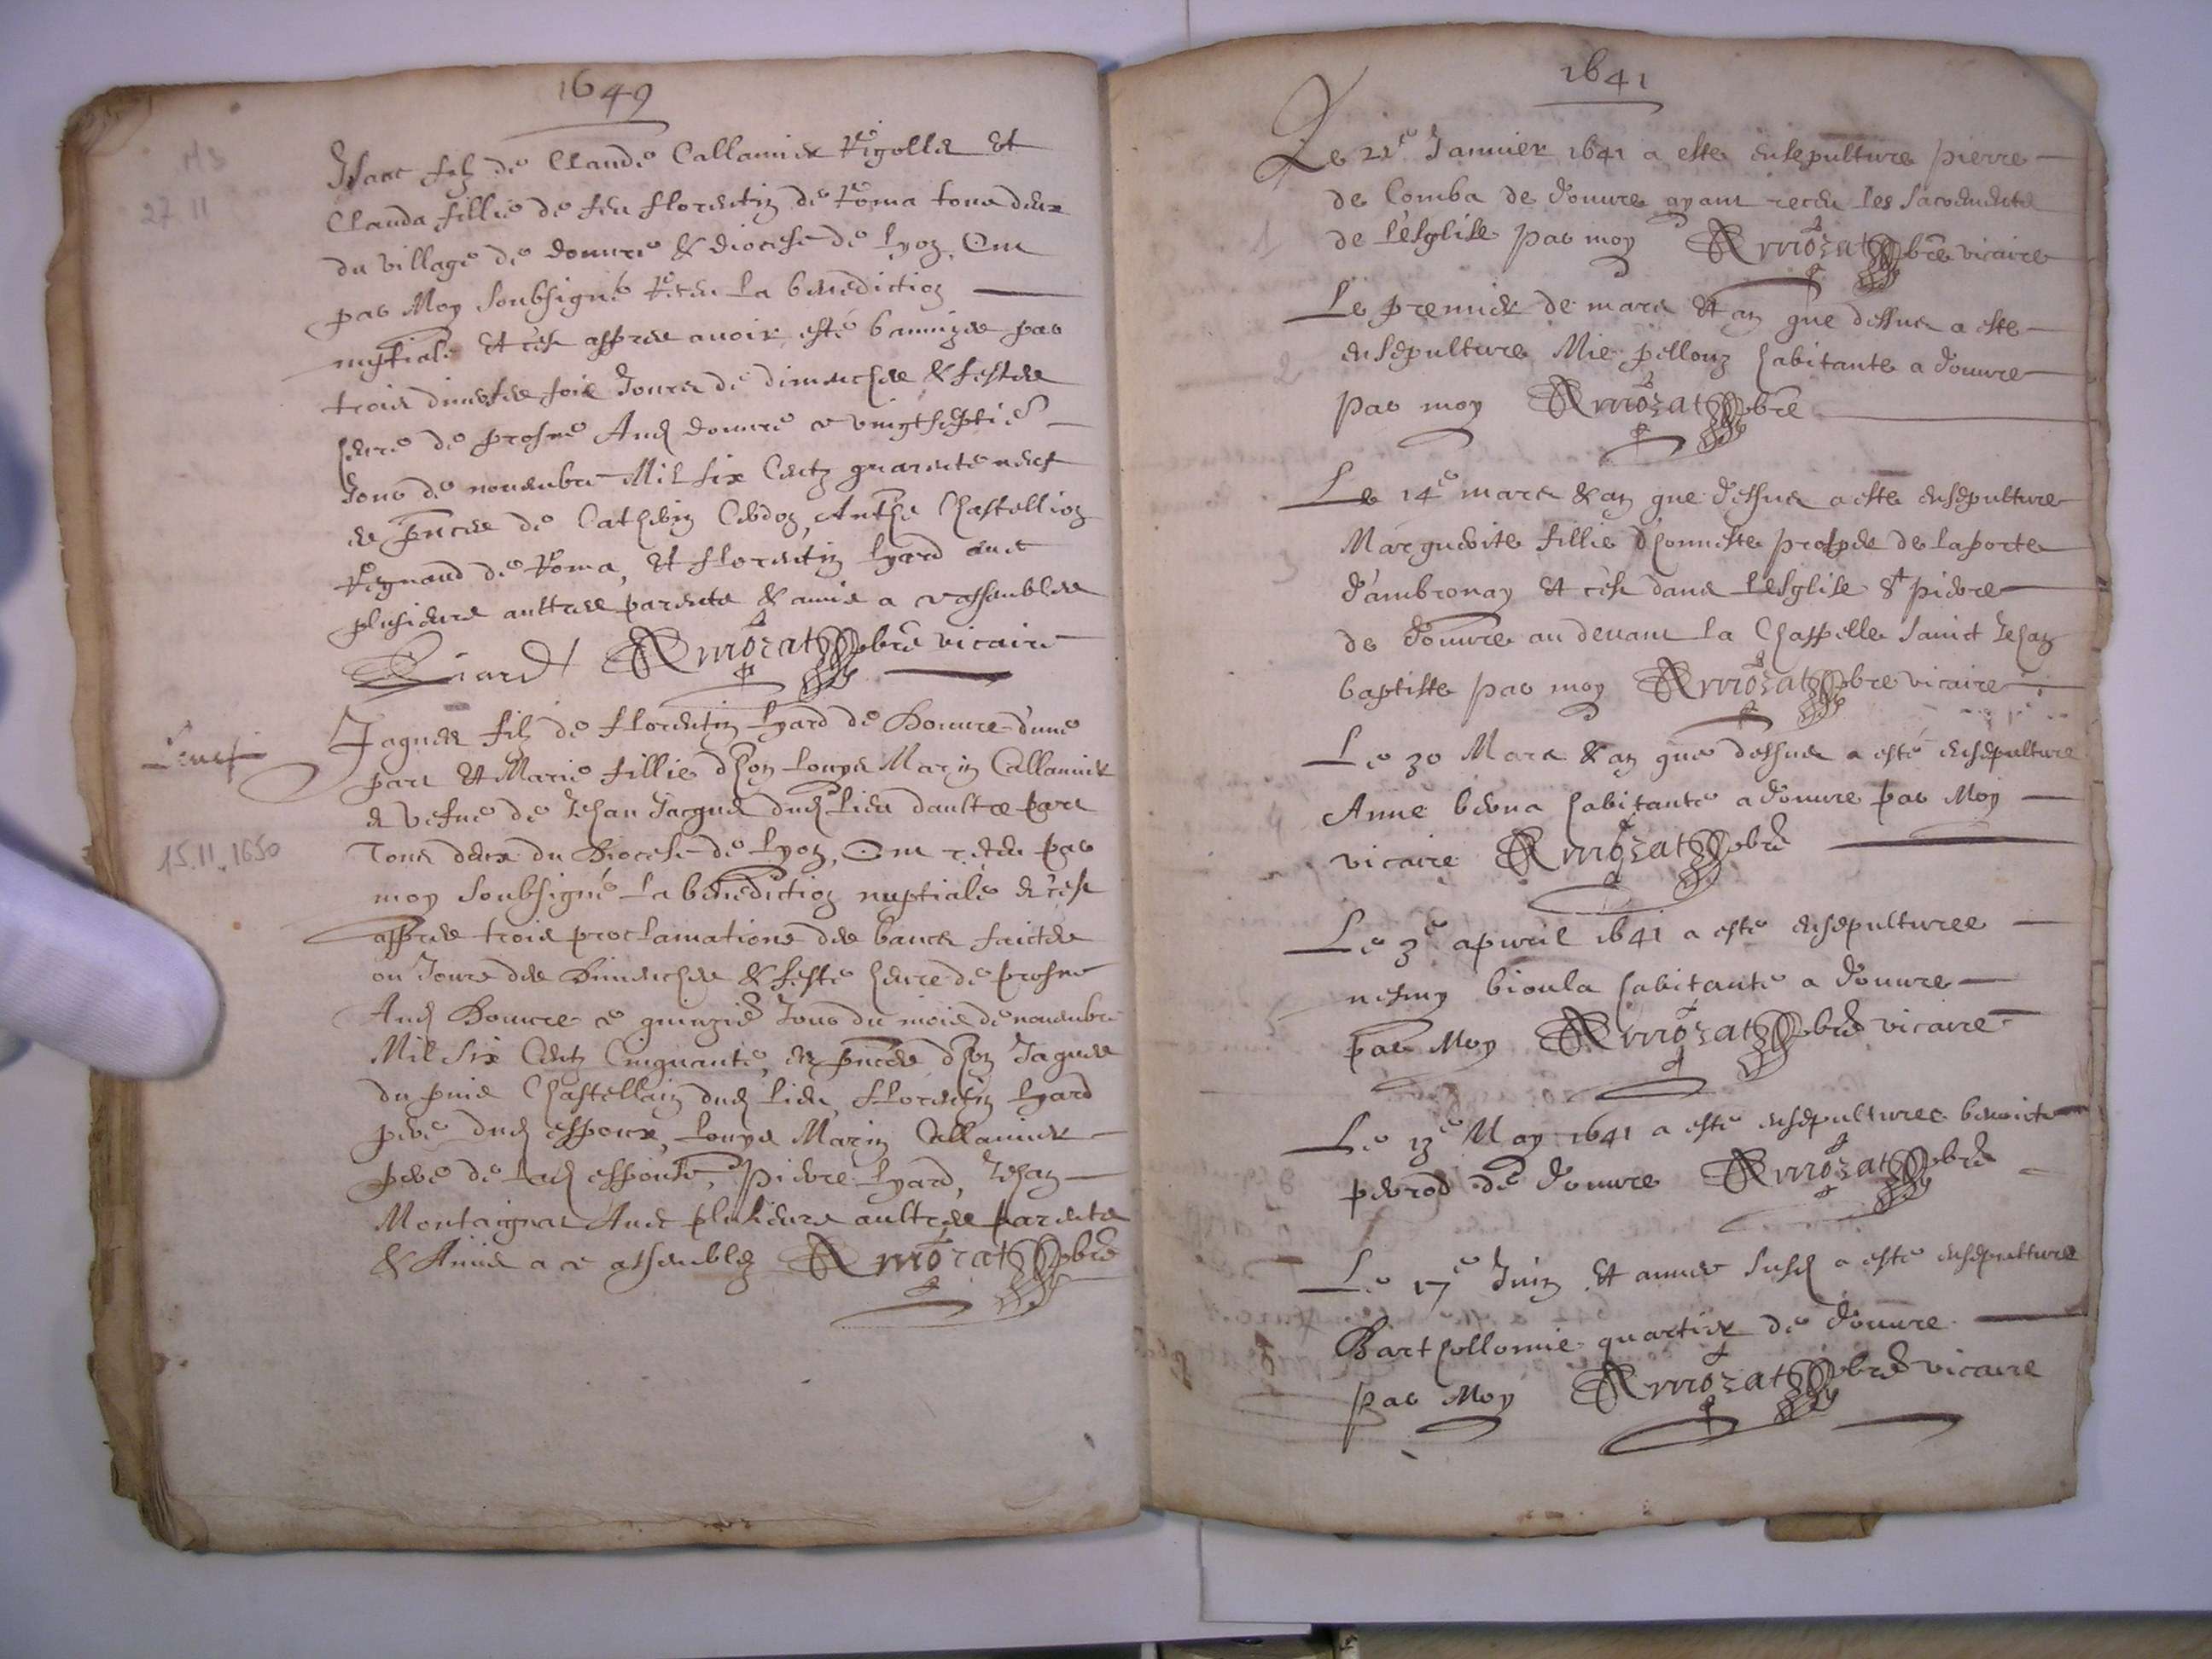 1649
Isaac filz de Claude Callamier Rigollet et
Clauda fillie de feu florentin de Roma tous deux
du village de Douvre & diocese de Lyon, Ont
par Moy soubsigné Receu la benediction
nuptiale et ce appres avoir esté bannizes par
trois diverses fois Jours de dimenches & festes
heure de prosne Aud Douvre ce vingtseptie
Jour de novembre Mil six Centz quarente neuf
es pnces de Cathelin Anthe Chastellion
Reynaud de Roma, et florentin Lyard avec
plusieurs aultres parents & amis a ce assembles
Liard Armozat pbre vicaire
27 11
Jaques filz de florentin Lyard de Douvre dune
part et Marie fillie dhon Louys Marin Callamier
& vefve de Jehan Jaques dud lieu daultre part
Tous deux du Diocese de Lyon, Ont receu par
moy soubsigné la benediction nuptiale & ce
appres trois proclamations des bancs faictes
ou Jours des Dimenches & feste heure de prosne
Aud Douvre ce quinzie Jour du mois de novembre
Mil six Centz Cinquante, es pnces dhon Jaques
du puis Chastellain dud lieu, florentin Lyard
pere dud espoux, Louys Marin Callamier
pere de lad espouse, pierre Lyard, Jehan
Montaignat Avec plusieurs aultres parents
& Amis a ce assemblez Armozat pbre
15.11.1650
1641
Le 21e Janvier 1641 a este ensepulture pierre
de Comba de douvre ayant receu les sacrements
de lesglise par moy Armozat pbre vicaire
1
Le premier de mars et an que dessus a este
ensepulture Mie pellouz habitante a douvre
par moy Armozat pbre
2
Le 14e mars & an que dessus a este ensepulture
Marguerite fillie dhonneste prosper de laporte
d'ambronay et ce dans lesglise St pierre
de douvre au devant la Chappelle sainct Jehan
baptiste par moy Armozat pbre vicaire
3
Le 30 Mars & an que dessus a esté ensepulture
Anne berna habitante a douvre par Moy
vicaire Armozat pbre
4
Le 3e apvril 1641 a este ensepulturee
bioula habitante a douvre
par Moy Armozat pbre vicaire
5
Le 13e May 1641 a este ensepulturee benoicte
perrod de douvre Armozat pbre
Le 17e Juin et annee susd a este ensepulture
Barthollomie quartier de douvre
par Moy Armozat pbre vicaire